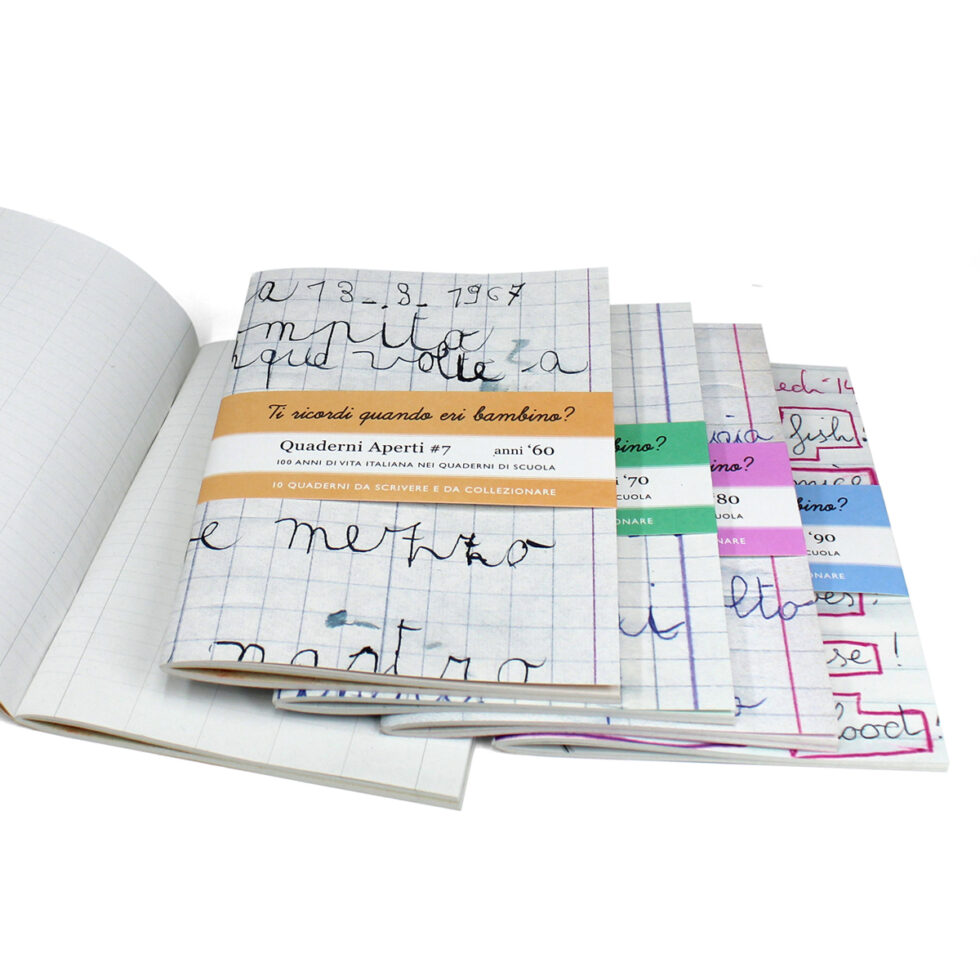 a 13-.3-1967
mpita
que volte a
Ti ricordi quando eri bambino?
Quaderni Aperti #7 anni ‘60
100 ANNI DI VITA ITALIANA NEI QUADERNI DI SCUOLA
10 QUADERNI DA SCRIVERE E DA COLLEZIONARE
e mezzo
nastro
bino?
‘70
CUOLA
ONARE
i
oia
ino?
‘80
UOLA
NARE
lto
edì 14
fish!
mice
bino?
‘90
CUOLA
ONARE
es!
se!
lood!